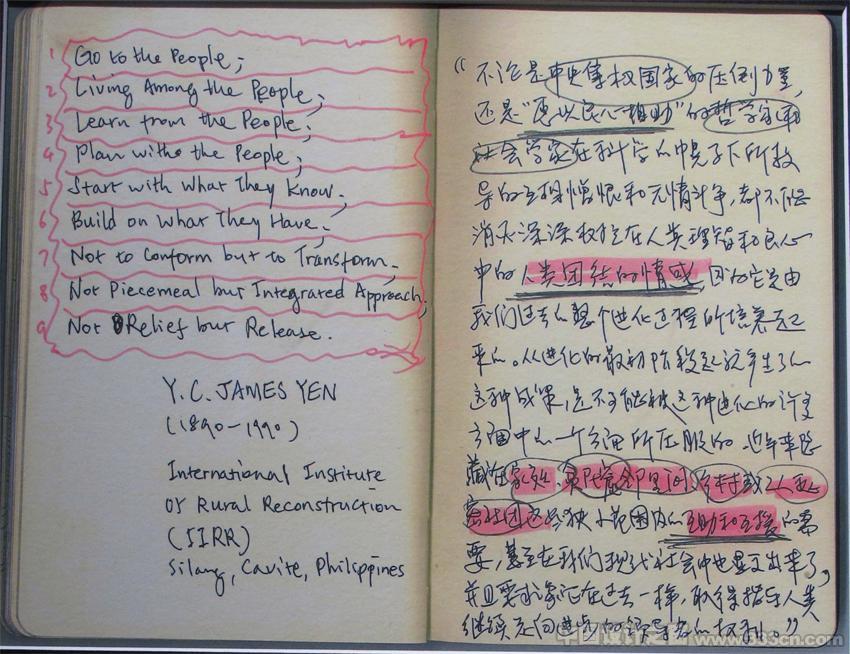 1 Go to the People;
2 Living Among the People;
3 Learn from the People;
4 Plan withe the People;
5 Start with What They Know.
6 Build on What They Have.
7 Not to Conform but to Transform.
8 Not Piecemeal but Integrated Approach;
9 Not Relief but Release.
Y. C. JAMES YEN
(1890-1990)
International Institute
of Rural Reconstruction
(IIRR)
Silang, Cavite, Philippines
“不论是中央集权国家的压倒力量,
还是“ 的哲学家和
社会学家在科学的幌子下所教
导的互相憎恨和无情斗争,都不能
消灭深深 在人类理智和良心
中的人类团结的情感,因为它是由
我们过去的整个进化过程所 起
来的。从进化的最初阶段起就产生了的
这种成果,是不可能被这种进化的许多
方面中的一个方面所压服的。近年来隐
藏在家 、 邻里间、 或
社团这些狭小范围内的互助和互援的需
要,甚至在我们现代社会中也显又出来了,
并且要求象它在过去一样,取得指导人类
继续走向进步的领导者的权利。”
中国设计之窗 www.333cn.com